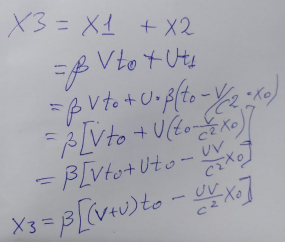 X3 = X1 + X2
= β Vt₀ + Ut₁
= β Vt₀ + U·β(t₀ - V/C² · X₀)
= β[Vt₀ + U(t₀ - V/C² X₀)]
= β[Vt₀ + Ut₀ - UV/C² X₀]
X3 = β[(V+U)t₀ - UV/C² X₀]